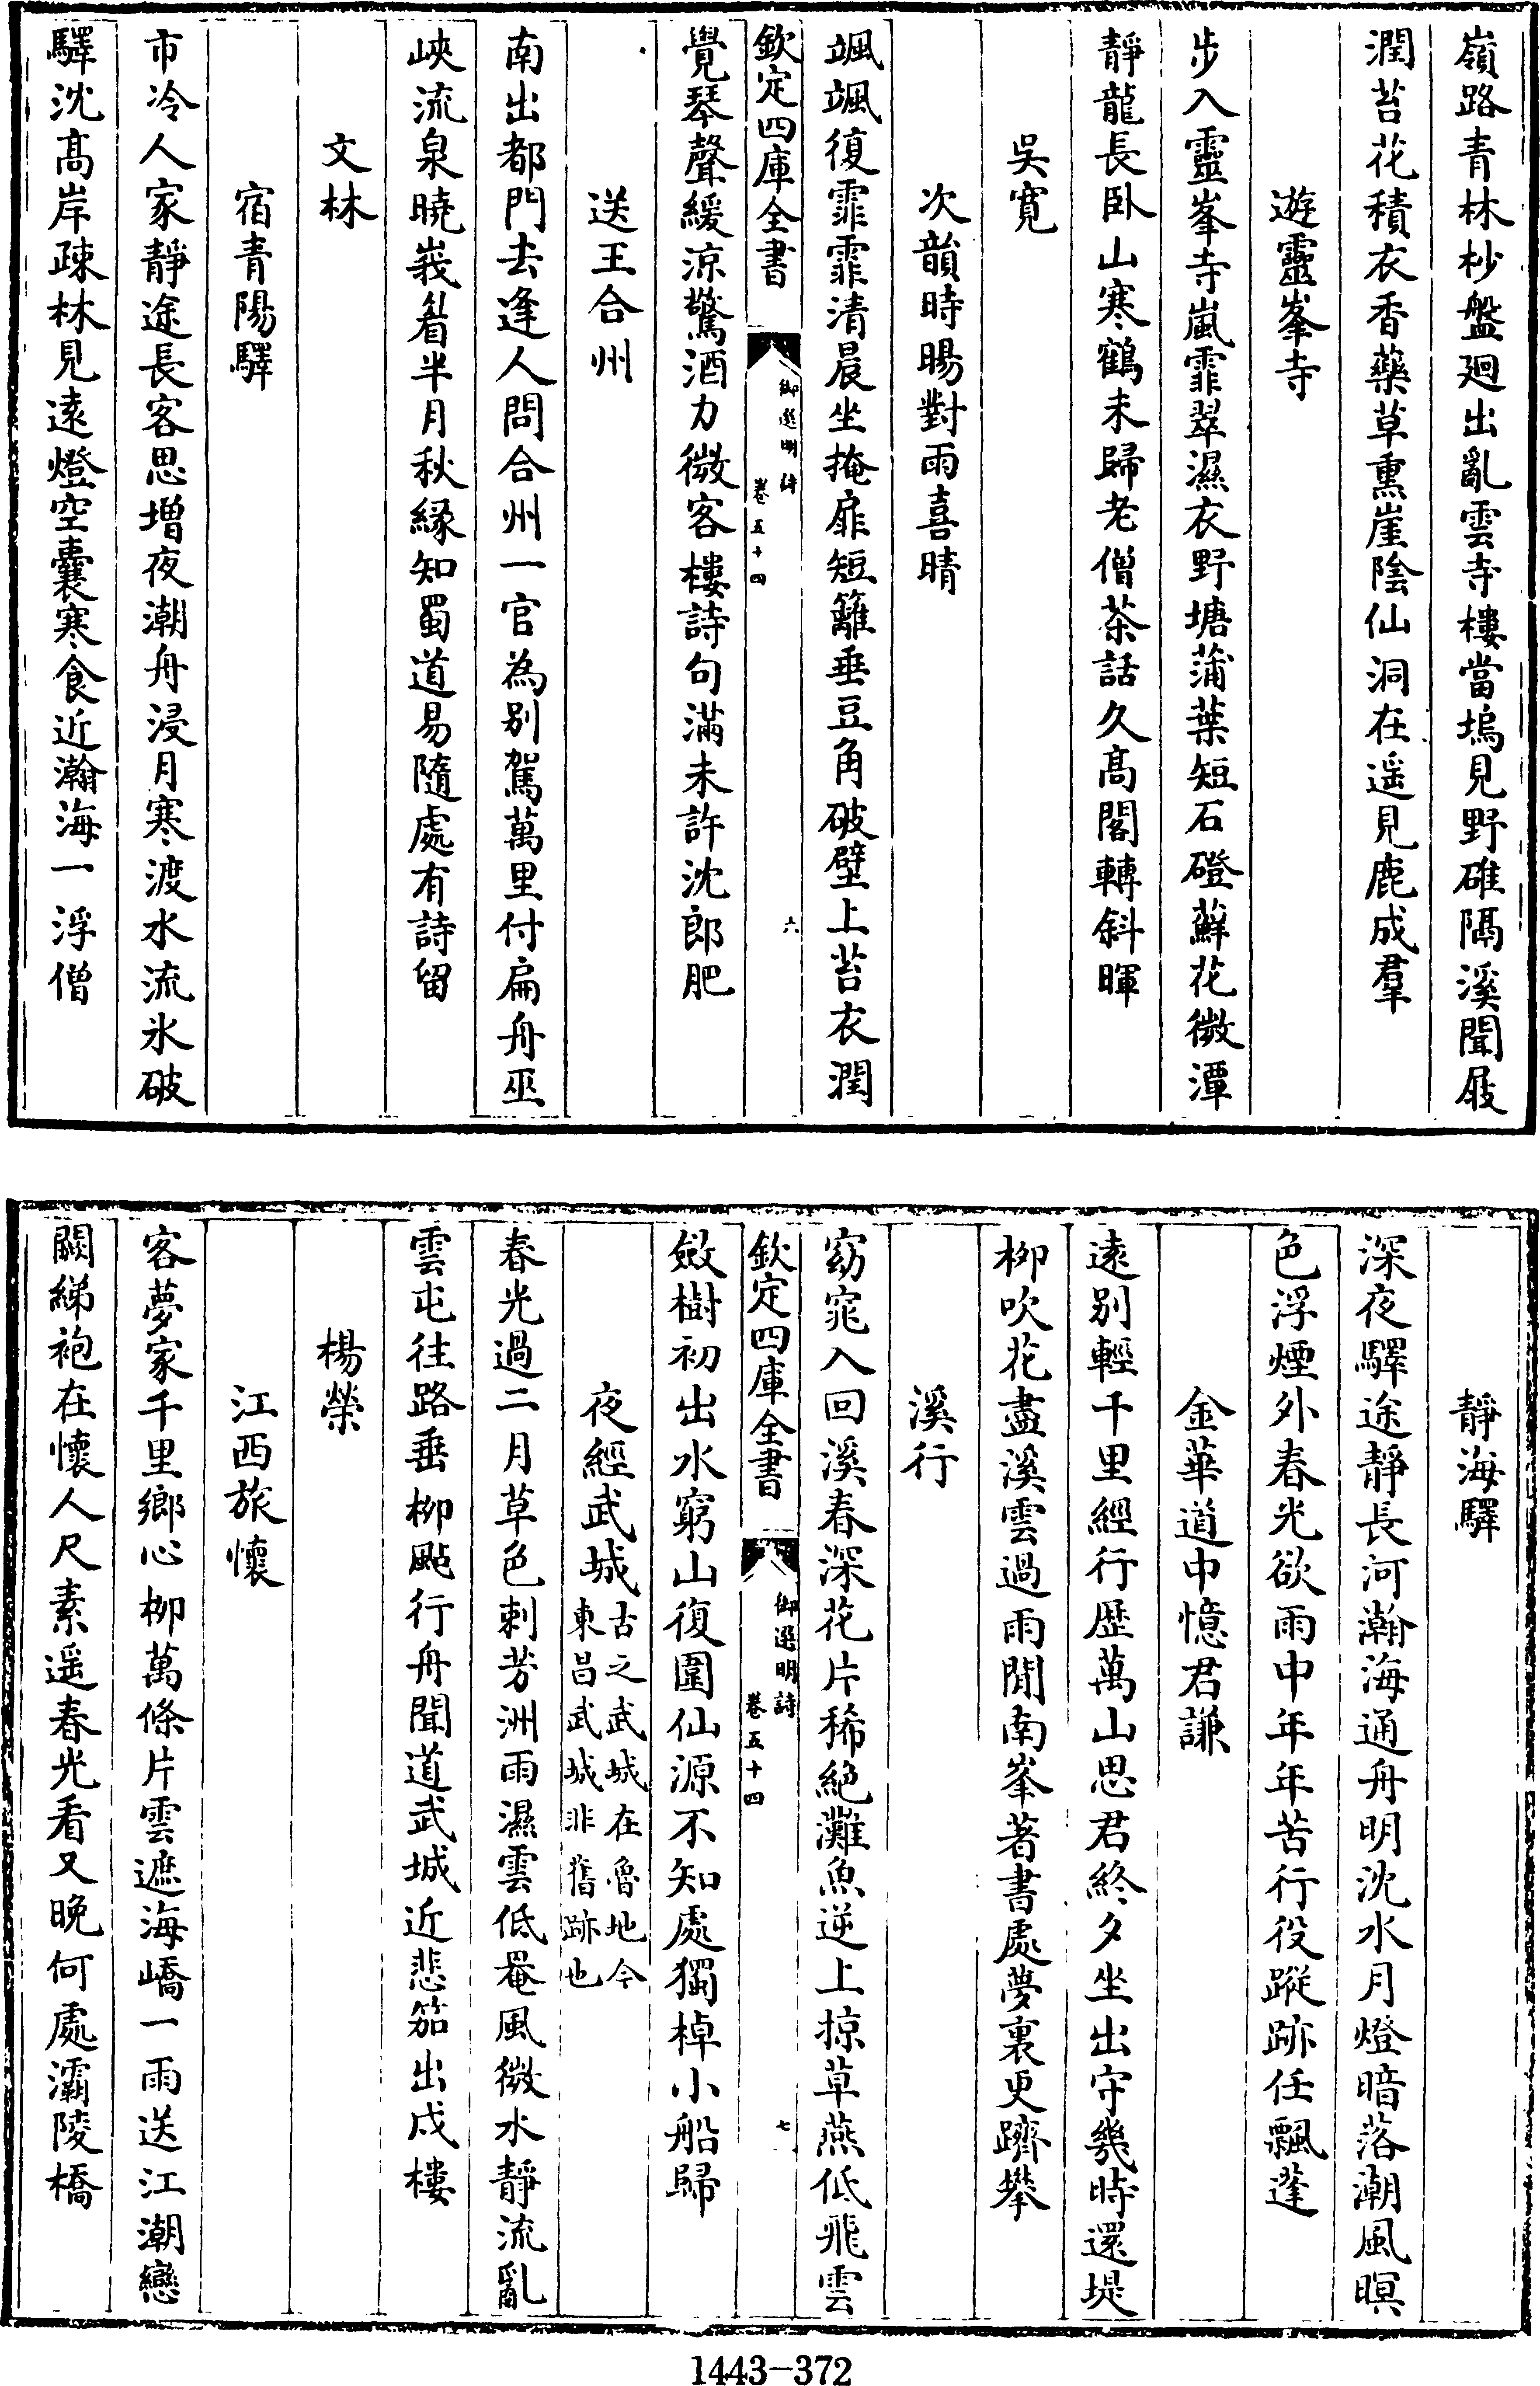 嶺路青林杪盤廻出亂雲寺樓當塢見野碓隔溪聞屐
潤苔花積衣香藥草熏崖陰仙洞在遥見鹿成羣
遊靈峯寺
步入靈峯寺嵐霏翠濕衣野塘蒲葉短石磴蘚花微潭
靜龍長卧山寒鶴未歸老僧茶話久髙閣轉斜暉
吳寛
次韻時暘對雨喜晴
颯颯復霏霏清晨坐掩扉短籬垂豆角破壁上苔衣潤
欽定四庫全書
御選明詩
卷五十四
六
覺琴聲緩涼驚酒力微客樓詩句滿未許沈郎肥
送王合州
南出都門去逢人問合州一官為别駕萬里付扁舟巫
峽流泉曉峩眉半月秋縁知蜀道易隨處有詩留
文林
宿青陽驛
市冷人家靜途長客思增夜潮舟浸月寒渡水流氷破
驛沈髙岸疎林見逺燈空囊寒食近瀚海一浮僧
靜海驛
深夜驛途靜長河瀚海通舟明沈水月燈暗落潮風暝
色浮煙外春光欲雨中年年苦行役蹤跡任飄蓬
金華道中憶君謙
逺别輕千里經行歴萬山思君終夕坐出守幾時還堤
柳吹花盡溪雲過雨閒南峯著書處夢裏更躋攀
溪行
窈窕入回溪春深花片稀絶灘魚逆上掠草燕低飛雲
欽定四庫全書
御選明詩
卷五十四
七
斂樹初出水窮山復圍仙源不知處獨棹小船歸
夜經武城古之武城在魯地今東昌武城非舊跡也
春光過二月草色剌芳洲雨濕雲低罨風微水靜流亂
雲屯徃路垂柳㸃行舟聞道武城近悲笳出戍樓
楊榮
江西旅懷
客夢家千里鄉心柳萬條片雲遮海嶠一雨送江潮戀
闕綈袍在懷人尺素遥春光看又晚何處灞陵橋
1443-372